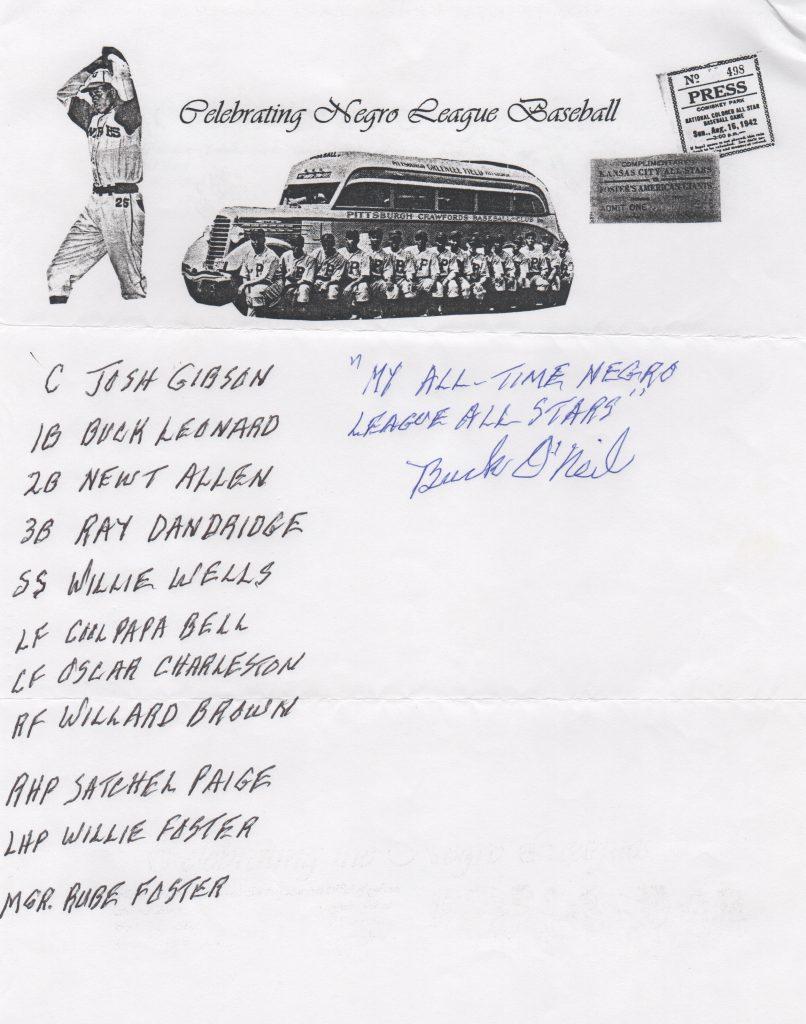 Celebrating Negro League Baseball
Nº 498
PRESS
COMISKEY PARK
NATIONAL COLORED ALL STAR
BASEBALL GAME
Sun., Aug. 16, 1942
COMPLIMENTARY
KANSAS CITY ALL STARS
FOSTER'S AMERICAN GIANTS
ADMIT ONE
25
PITTSBURGH CRAWFORDS BASEBALL CLUB
C JOSH GIBSON
1B BUCK LEONARD
2B NEWT ALLEN
3B RAY DANDRIDGE
SS WILLIE WELLS
LF COOL PAPA BELL
CF OSCAR CHARLESTON
RF WILLARD BROWN
RHP SATCHEL PAIGE
LHP WILLIE FOSTER
MGR. RUBE FOSTER
"MY ALL-TIME NEGRO
LEAGUE ALL STARS"
Buck O'Neil